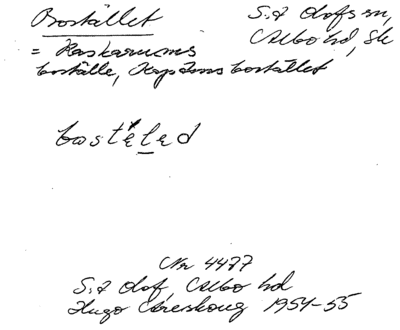 Bostället
S:t Olofs sn,
Albo hd, Sk
= Kaskarums
boställe, Kaptens bostället
bostèled
Nr 4477
S:t Olof, Albo hd
Hugo Areskoug 1954-55